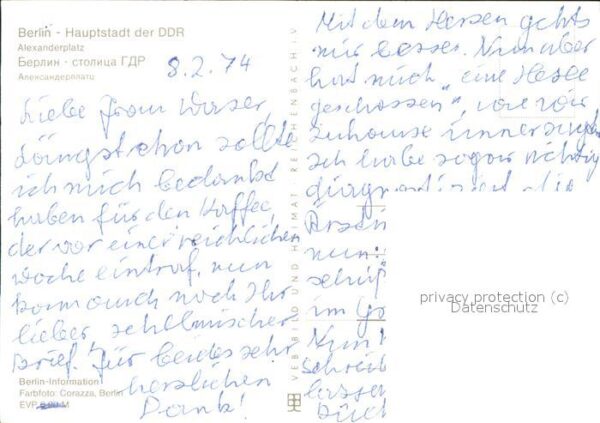 Berlin · Hauptstadt der DDR
Alexanderplatz
Берлин · столица ГДР
Александерплатц
8.2.74
Liebe Frau
Längst schon sollte
ich mich bedankt
haben für den Kaffee,
der vor einer reichlichen
Woche eintraf, nun
kam auch noch Ihr
lieber, schelmischer
Brief. Für beides sehr
herzlichen
Dank!
Berlin-Information
Farbfoto: Corazza, Berlin
EVP 0,20 M
VEB BILD UND HEIMAT REICHENBACH i. V.
Mit dem Herzen gehts
mir besser. Nun aber
hat mich "eine Hexe
geschossen", wie wir
zuhause immer sagen.
Ich habe sogar richtig
diagnostiziert, die
nun
im
Nun
schreib
privacy protection (c)
Datenschutz